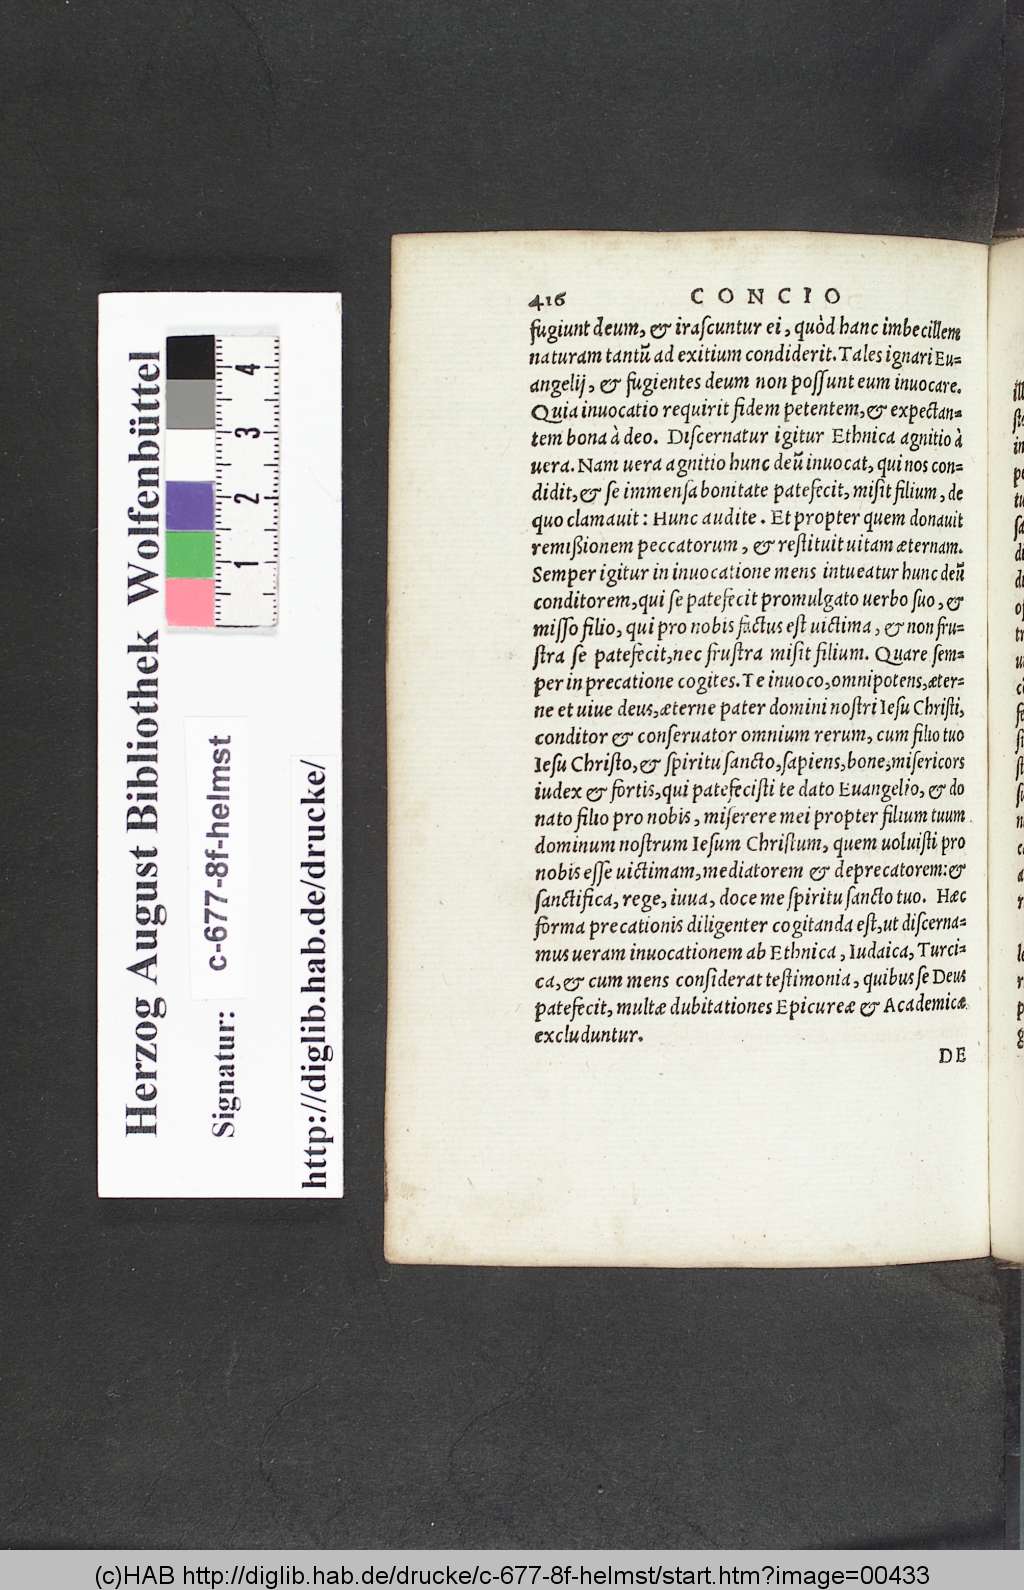 Herzog August Bibliothek Wolfenbüttel
Signatur: c-677-8f-helmst
http://diglib.hab.de/drucke/
1 2 3 4
416 CONCIO
fugiunt deum, & irascuntur ei, quòd hanc imbecillem
naturam tantũ ad exitium condiderit. Tales ignari Eu=
angelij, & fugientes deum non possunt eum inuocare.
Quia inuocatio requirit fidem petentem, & expectan=
tem bona à deo. Discernatur igitur Ethnica agnitio à
uera. Nam uera agnitio hunc deũ inuocat, qui nos con=
didit, & se immensa bonitate patefecit, misit filium, de
quo clamauit: Hunc audite. Et propter quem donauit
remißionem peccatorum, & restituit uitam æternam.
Semper igitur in inuocatione mens intueatur hunc deũ
conditorem, qui se patefecit promulgato uerbo suo, &
misso filio, qui pro nobis factus est uictima, & non fru=
stra se patefecit, nec frustra misit filium. Quare sem=
per in precatione cogites. Te inuoco, omnipotens, æter=
ne et uiue deus, æterne pater domini nostri Iesu Christi,
conditor & conseruator omnium rerum, cum filio tuo
Iesu Christo, & spiritu sancto, sapiens, bone, misericors
iudex & fortis, qui patefecisti te dato Euangelio, & do
nato filio pro nobis, miserere mei propter filium tuum
dominum nostrum Iesum Christum, quem uoluisti pro
nobis esse uictimam, mediatorem & deprecatorem: &
sanctifica, rege, iuua, doce me spiritu sancto tuo. Hæc
forma precationis diligenter cogitanda est, ut discerna=
mus ueram inuocationem ab Ethnica, Iudaica, Turci=
ca, & cum mens considerat testimonia, quibus se Deus
patefecit, multæ dubitationes Epicureæ & Academicæ
excluduntur.
DE
(c)HAB http://diglib.hab.de/drucke/c-677-8f-helmst/start.htm?image=00433